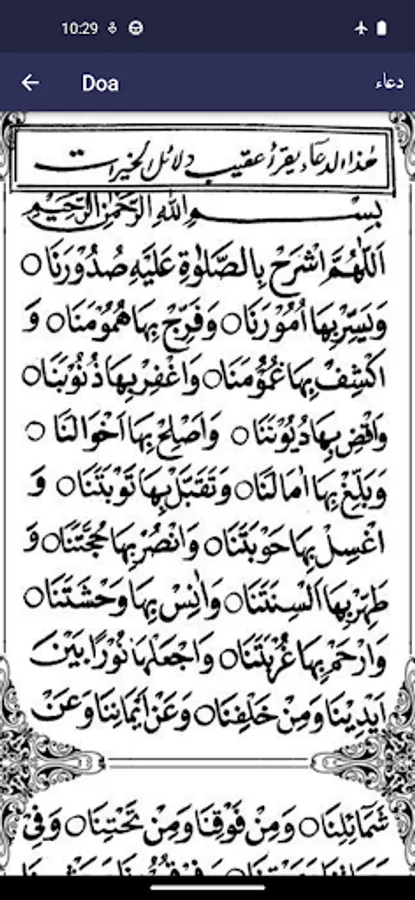 10:29
Doa
دعاء
هٰذا الدعاء يقرأ عقيب دلائل الخيرات
بِسْــــــمِ اللهِ الرَّحْمٰنِ الرَّحِيْمِ
اَللّٰهُمَّ اشْرَحْ بِالصَّلٰوةِ عَلَيْهِ صُدُوْرَنَا ○
وَيَسِّرْ بِهَا اُمُوْرَنَا ○ وَفَرِّجْ بِهَا هُمُوْمَنَا ○ وَ
اكْشِفْ بِهَا غُمُوْمَنَا ○ وَاغْفِرْ بِهَا ذُنُوْبَنَا ○
وَاقْضِ بِهَا دُيُوْنَنَا ○ وَاَصْلِحْ بِهَا اَحْوَالَنَا ○
وَبَلِّغْ بِهَا اٰمَالَنَا ○ وَتَقَبَّلْ بِهَا تَوْبَتَنَا ○ وَ
اغْسِلْ بِهَا حَوْبَتَنَا ○ وَانْصُرْ بِهَا حُجَّتَنَا ○ وَ
طَهِّرْ بِهَا اَلْسِنَتَنَا ○ وَاٰنِسْ بِهَا وَحْشَتَنَا ○
وَارْحَمْ بِهَا غُرْبَتَنَا ○ وَاجْعَلْهَا نُوْرًا بَيْنَ
اَيْدِيْنَا وَمِنْ خَلْفِنَا ○ وَعَنْ اَيْمَانِنَا وَعَنْ
شَمَائِلِنَا ○ وَمِنْ فَوْقِنَا وَمِنْ تَحْتِنَا ○ وَفِيْ